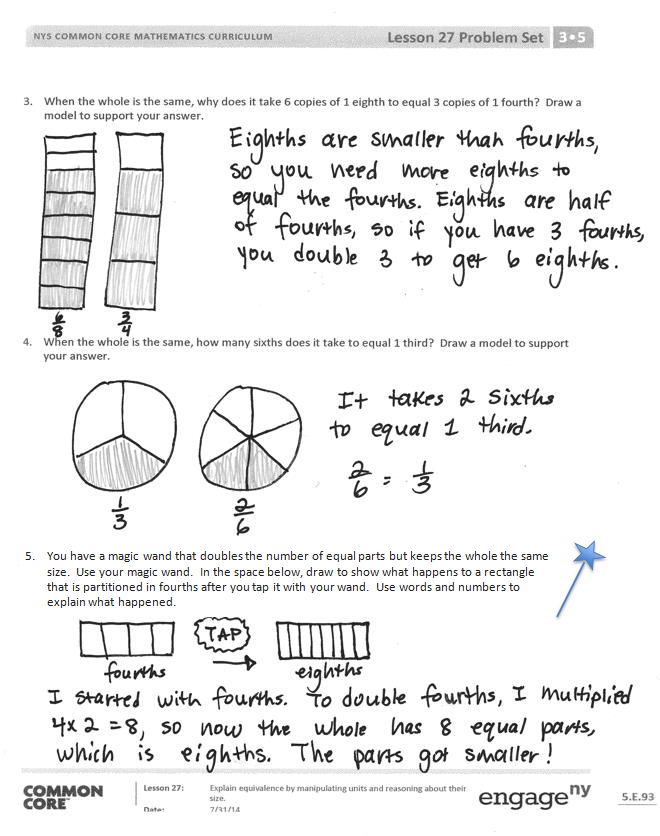 NYS COMMON CORE MATHEMATICS CURRICULUM
Lesson 27 Problem Set 3•5
3. When the whole is the same, why does it take 6 copies of 1 eighth to equal 3 copies of 1 fourth? Draw a
model to support your answer.
Eighths are smaller than fourths,
so you need more eighths to
equal the fourths. Eighths are half
of fourths, so if you have 3 fourths,
you double 3 to get 6 eighths.
6/8 3/4
4. When the whole is the same, how many sixths does it take to equal 1 third? Draw a model to support
your answer.
It takes 2 sixths
to equal 1 third.
2/6 = 1/3
1/3 2/6
5. You have a magic wand that doubles the number of equal parts but keeps the whole the same
size. Use your magic wand. In the space below, draw to show what happens to a rectangle
that is partitioned in fourths after you tap it with your wand. Use words and numbers to
explain what happened.
TAP
fourths eighths
I started with fourths. To double fourths, I multiplied
4x2=8, so now the whole has 8 equal parts,
which is eighths. The parts got smaller!
COMMON
CORE™
Lesson 27: Explain equivalence by manipulating units and reasoning about their
size.
Date: 7/31/14
engage ny
5.E.93